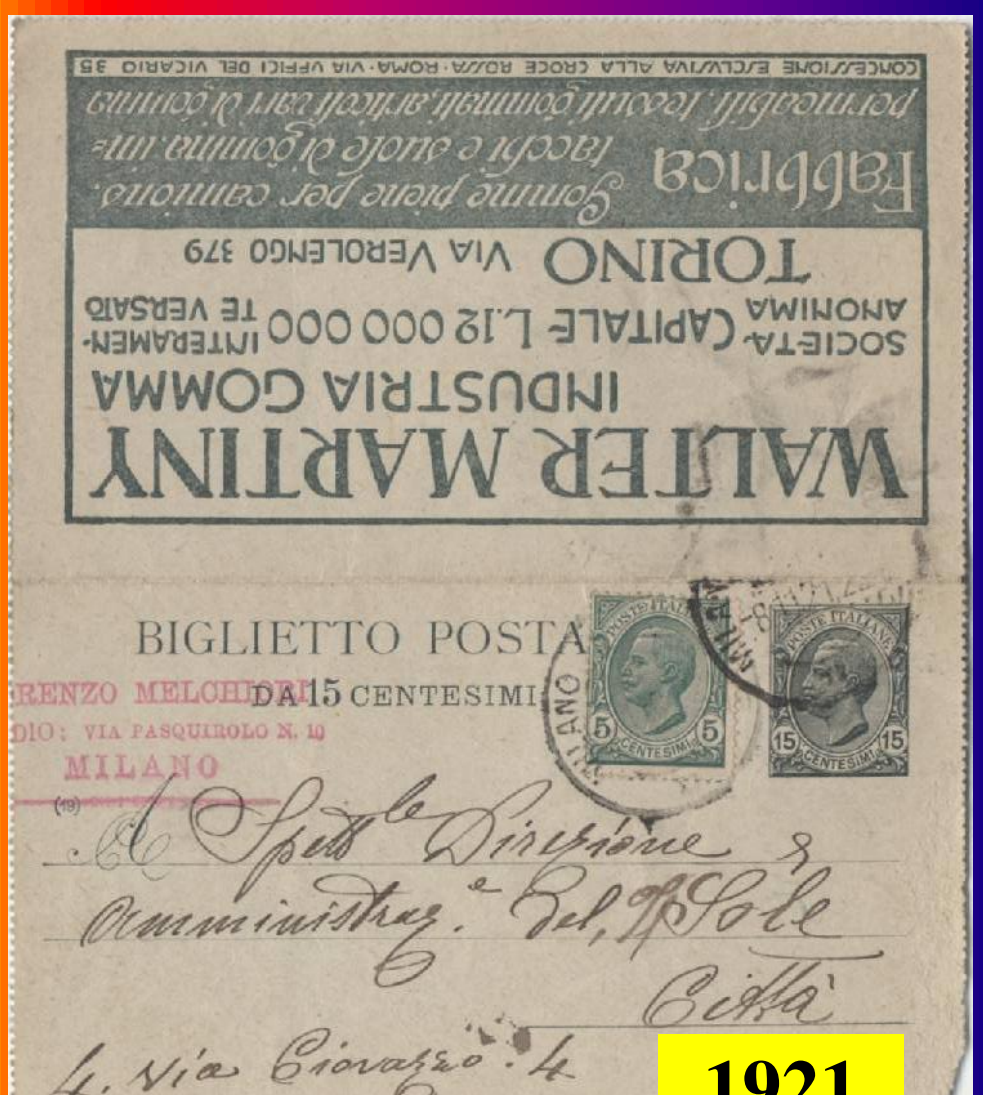 WALTER MARTINY
INDUSTRIA GOMMA
SOCIETÀ ANONIMA CAPITALE L.12 000 000 INTERAMEN-
TE VERSATO
TORINO VIA VEROLENGO 379
Fabbrica Gomme piene per camions.
tacchi e suole di gomma, im=
permeabili, tessuti gommati, articoli vari di gomma
CONCESSIONE ESCLUSIVA ALLA CROCE ROSSA·ROMA·VIA UFFICI DEL VICARIO 35
BIGLIETTO POSTA
DA 15 CENTESIMI
POSTE ITALIANE
5 5
CENTESIMI
MILANO
POSTE ITALIANE
15 15
CENTESIMI
MILANO
RENZO MELCHIORI
DIO: VIA PASQUIROLO N. 10
MILANO
(19)
A Spett.le Direzione &
Amministraz.e del "Il Sole
Città
4. Via 4
1921